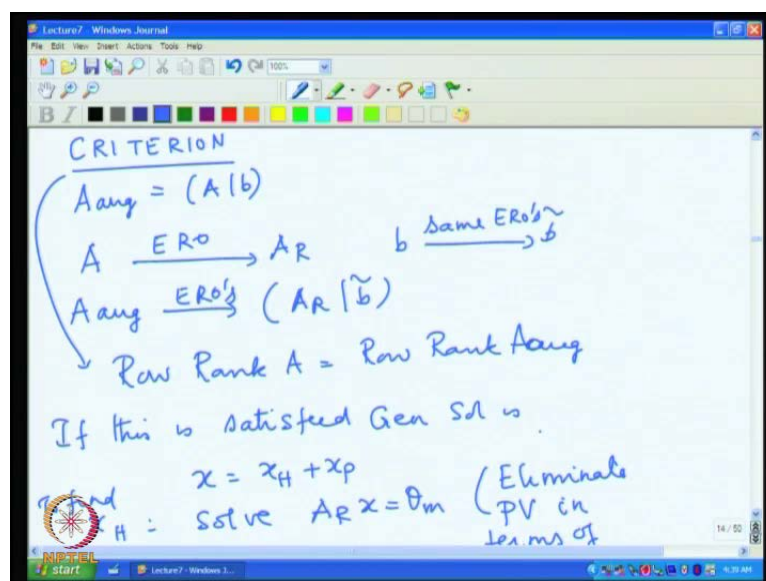 Lecture7 - Windows Journal
File Edit View Insert Actions Tools Help
100%
B I
CRITERION
A aug = (A|b)
A ERO → A_R b same ERO's → b̃
A aug ERO's → (A_R | b̃)
Row Rank A = Row Rank Aaug
If this is satisfed Gen Sol is.
x = x_H + x_P
To find x_H : solve A_R x = θ_m (Eliminate
PV in
terms of
14 / 50
NPTEL
start Lecture7 - Windows J... 4:39 AM